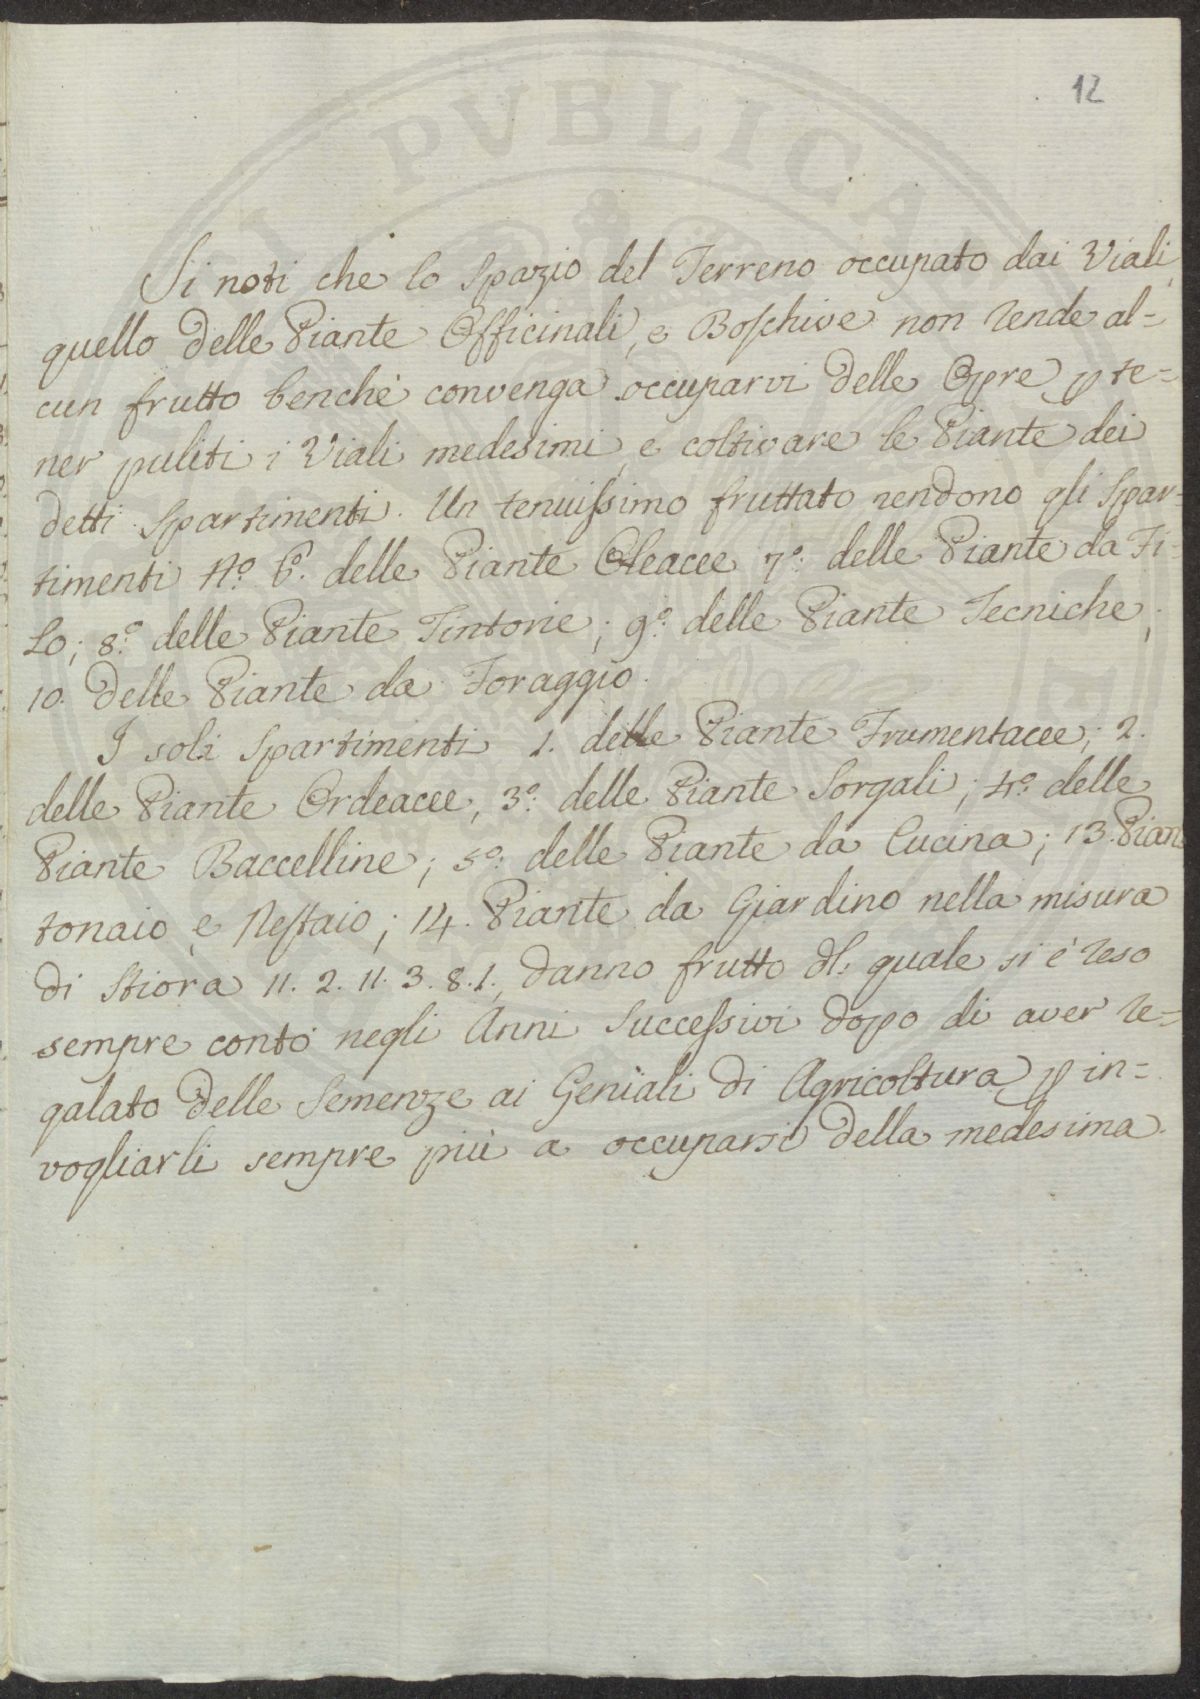 12
Si noti che lo Spazio del Terreno occupato dai Viali,
quello delle Piante Officinali, e Boschive non rende al=
cun frutto benchè convenga occuparvi delle Opre p te=
ner puliti i Viali medesimi, e coltivare le Piante dei
detti Spartimenti. Un tenuissimo fruttato rendono gli Spar=
timenti N.º 6.º delle Piante Oleacee 7.º delle Piante da Ti=
lo; 8.º delle Piante Tintorie; 9.º delle Piante Tecniche;
10. delle Piante da Foraggio.
I soli Spartimenti 1. delle Piante Frumentacee; 2.
delle Piante Ordeacee, 3.º delle Piante Sorgali; 4.º delle
Piante Baccelline; 5.º delle Piante da Cucina; 13. Pian
tonaio e Nestaio; 14. Piante da Giardino nella misura
di Stiora 11. 2. 11. 3. 8. 1., danno frutto dl: quale si è reso
sempre conto negli Anni Successivi dopo di aver re=
galato delle Semenze ai Geniali di Agricoltura p in=
vogliarli sempre più a occuparsi della medesima.
PVBLICA